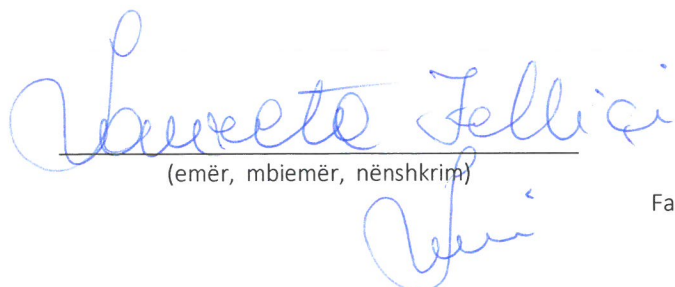 Laureta Jelliçi
(emër, mbiemër, nënshkrim)
Fa